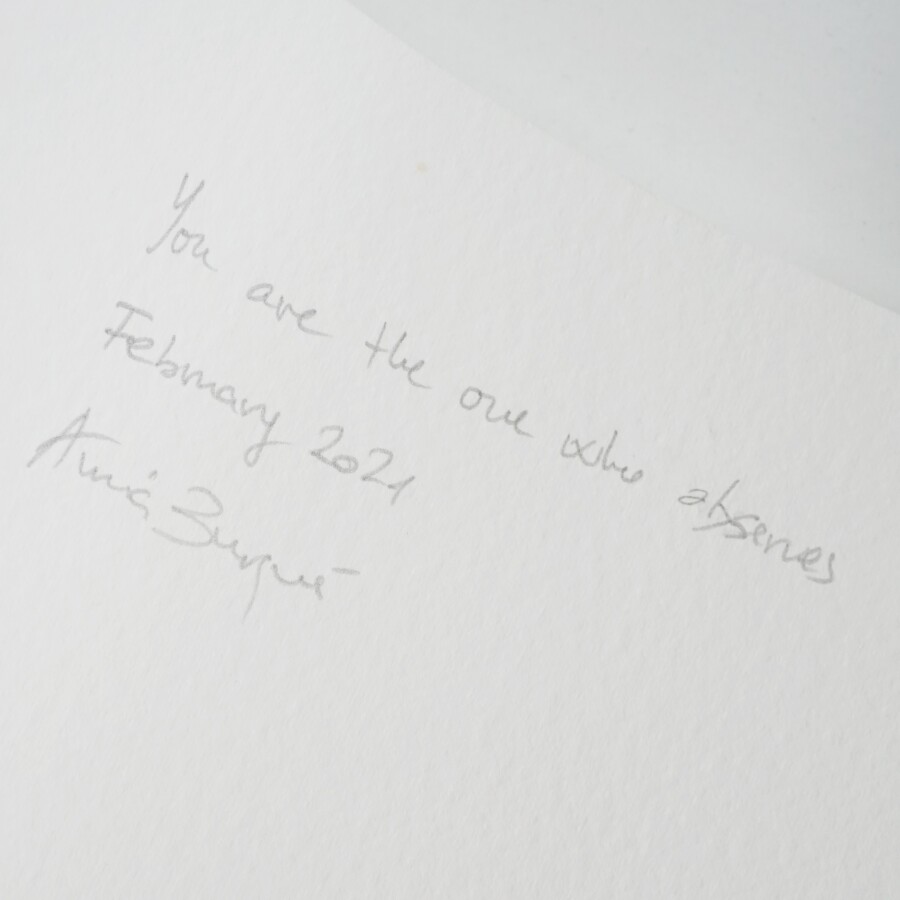 You are the one who observes
February 2021